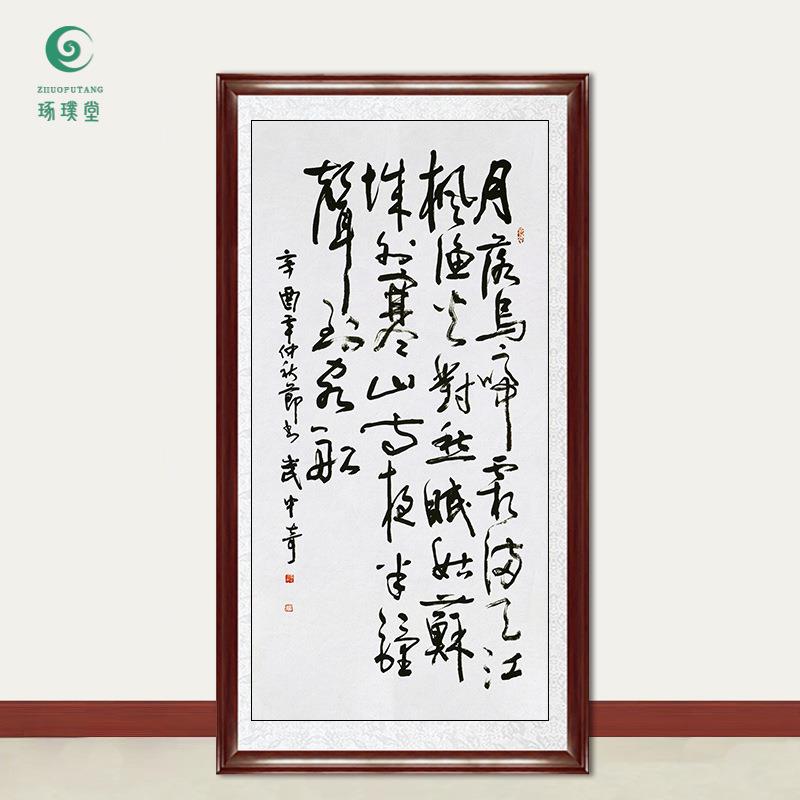 ZHUOPUTANG
琢璞堂
月落烏啼霜滿天江
楓漁火對愁眠姑蘇
城外寒山寺夜半鐘
聲到客船
辛酉年仲秋節書 武中奇